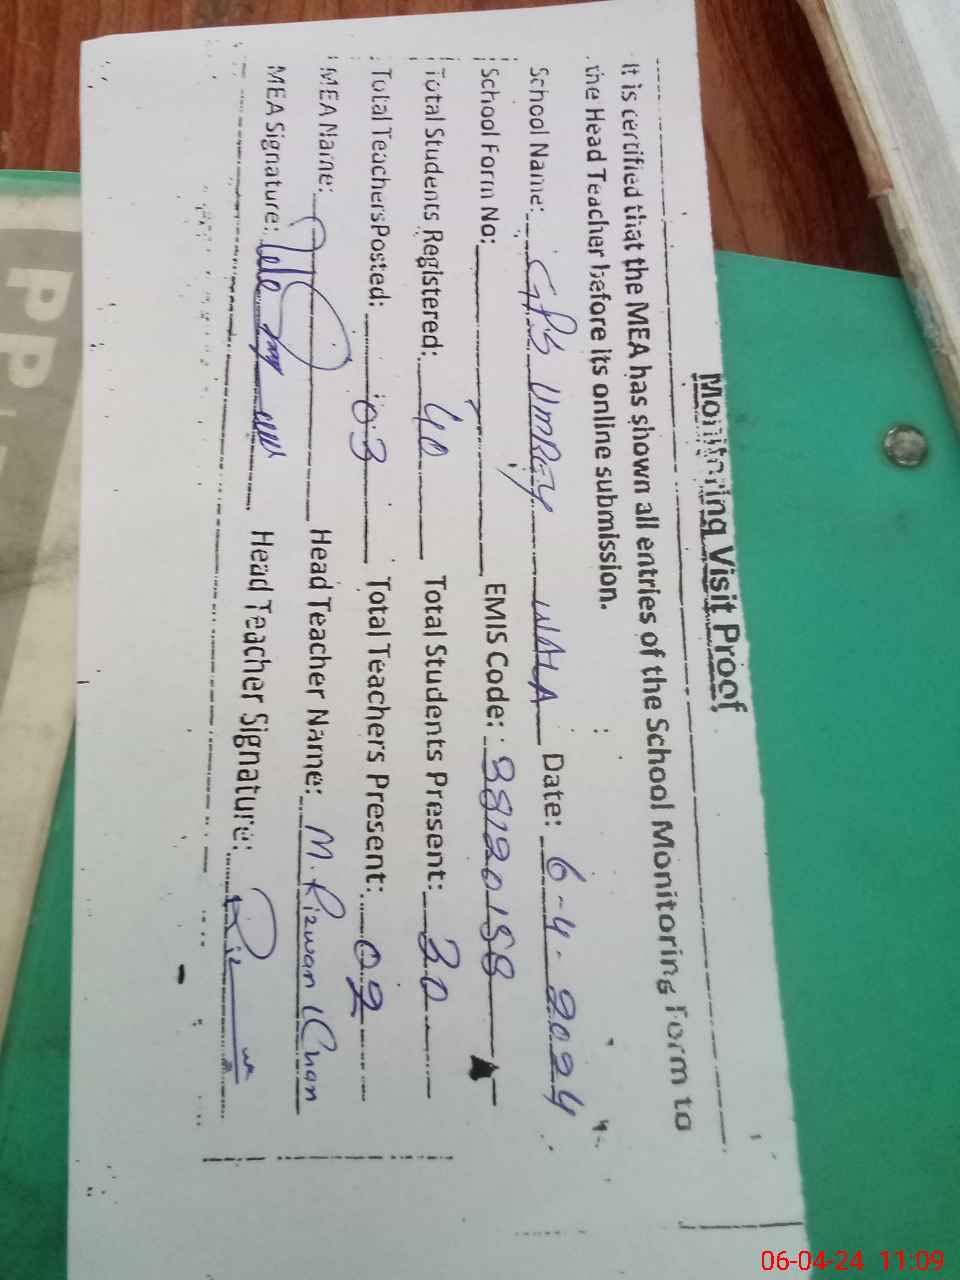 Monitoring Visit Proof
It is certified that the MEA has shown all entries of the School Monitoring Form to
the Head Teacher before its online submission.
School Name: GPS UMREY WALA Date: 6-4-2024
School Form No: EMIS Code: 38120158
Total Students Registered: 40 Total Students Present: 30
Total Teachers Posted: 03 Total Teachers Present: 02
MEA Name: Head Teacher Name: M. Rizwan Khan
MEA Signature: Head Teacher Signature:
PP
06-04-24 11:09